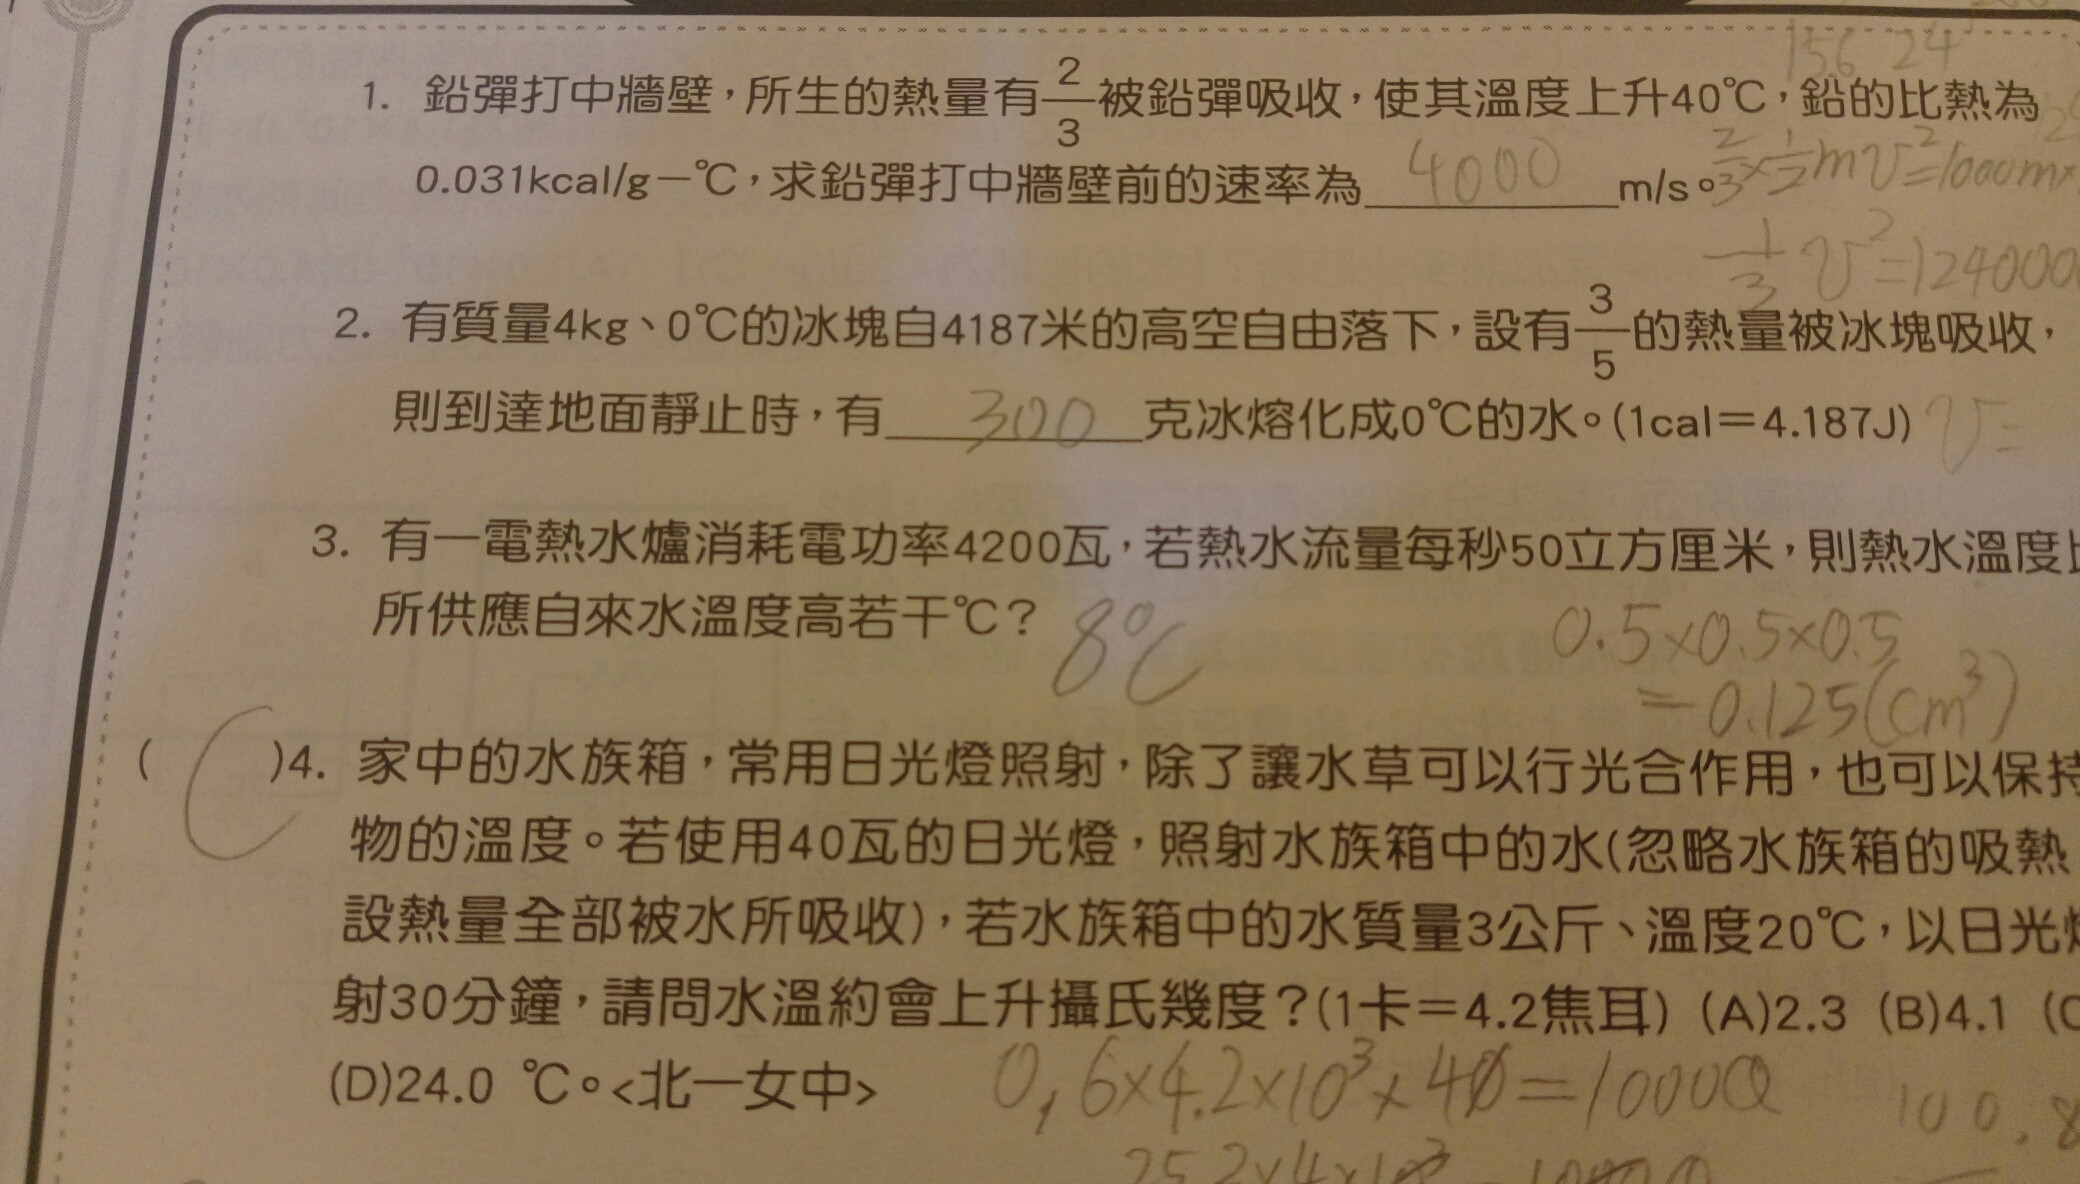 156 24
1. 鉛彈打中牆壁，所生的熱量有2/3被鉛彈吸收，使其溫度上升40℃，鉛的比熱為
0.031kcal/g－℃，求鉛彈打中牆壁前的速率為 4000 m/s。
2/3×1/2mv²=1000m×
1/3 v²=124000
2. 有質量4kg、0℃的冰塊自4187米的高空自由落下，設有3/5的熱量被冰塊吸收，
則到達地面靜止時，有 300 克冰熔化成0℃的水。(1cal＝4.187J)
v=
3. 有一電熱水爐消耗電功率4200瓦，若熱水流量每秒50立方厘米，則熱水溫度比
所供應自來水溫度高若干℃？ 8℃
0.5×0.5×0.5
=0.125(cm³)
( C )4. 家中的水族箱，常用日光燈照射，除了讓水草可以行光合作用，也可以保持
物的溫度。若使用40瓦的日光燈，照射水族箱中的水(忽略水族箱的吸熱
設熱量全部被水所吸收)，若水族箱中的水質量3公斤、溫度20℃，以日光
射30分鐘，請問水溫約會上升攝氏幾度？(1卡＝4.2焦耳) (A)2.3 (B)4.1 (C
(D)24.0 ℃。<北一女中>
0.6×4.2×10³×40=1000Q
100.8